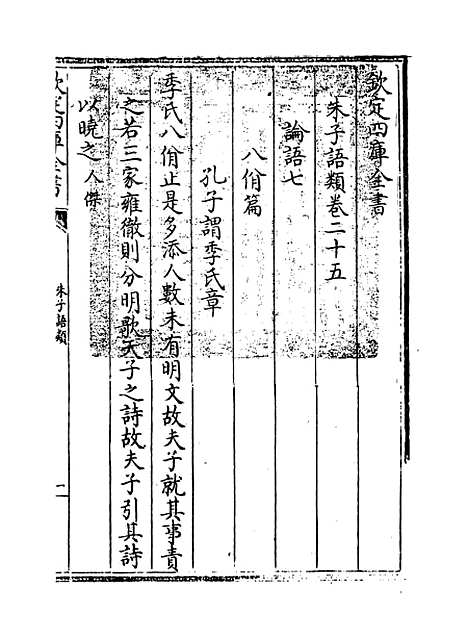 欽定四庫全書
朱子語類卷二十五
論語七
八佾篇
孔子謂季氏章
季氏八佾止是多添人數未有明文故夫子就其事責
之若三家雍徹則分明歌天子之詩故夫子引其詩
以曉之人傑
欽定四庫全書
朱子語類